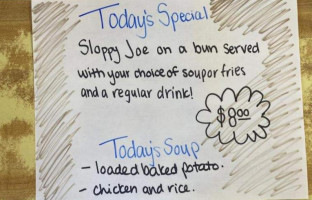 Today's Special
Sloppy Joe on a bun served
with your choice of soup or fries
and a regular drink!
$8.00
Today's Soup
- loaded baked potato.
- chicken and rice.